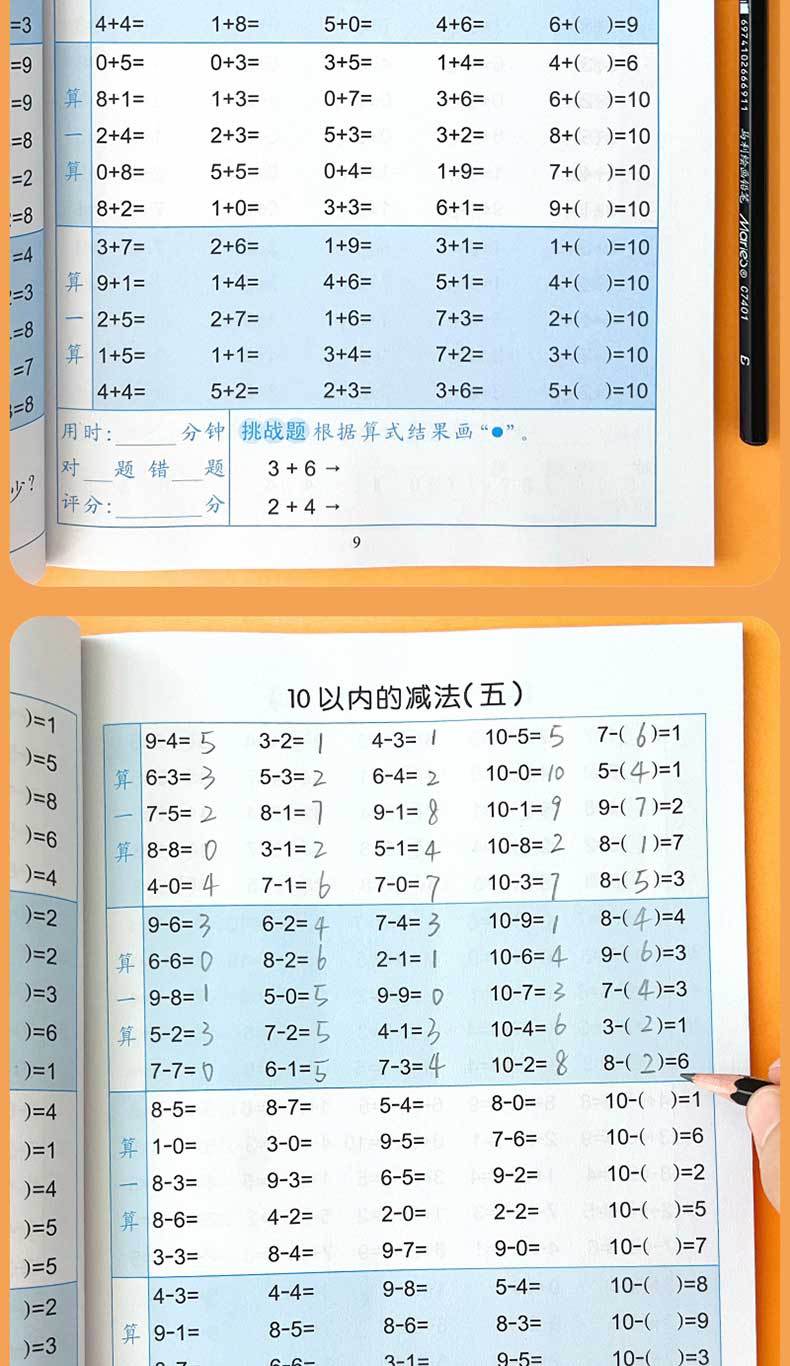 =3 4+4= 1+8= 5+0= 4+6= 6+( )=9
=9 0+5= 0+3= 3+5= 1+4= 4+( )=6
=9 算 8+1= 1+3= 0+7= 3+6= 6+( )=10
=8 一 2+4= 2+3= 5+3= 3+2= 8+( )=10
=2 算 0+8= 5+5= 0+4= 1+9= 7+( )=10
=8 8+2= 1+0= 3+3= 6+1= 9+( )=10
=4 3+7= 2+6= 1+9= 3+1= 1+( )=10
=3 算 9+1= 1+4= 4+6= 5+1= 4+( )=10
=8 一 2+5= 2+7= 1+6= 7+3= 2+( )=10
=7 算 1+5= 1+1= 3+4= 7+2= 3+( )=10
=8 4+4= 5+2= 2+3= 3+6= 5+( )=10
用时:_____分钟 挑战题 根据算式结果画“●”。
对__题 错__题 3+6→
少?
评分:_______分 2+4→
9
6974102666911 马利绘画铅笔 Marie's® C7401 E
10以内的减法(五)
)=1 9-4=5 3-2=1 4-3=1 10-5=5 7-(6)=1
)=5 算 6-3=3 5-3=2 6-4=2 10-0=10 5-(4)=1
)=8 一 7-5=2 8-1=7 9-1=8 10-1=9 9-(7)=2
)=6 算 8-8=0 3-1=2 5-1=4 10-8=2 8-(1)=7
)=4 4-0=4 7-1=6 7-0=7 10-3=7 8-(5)=3
)=2 9-6=3 6-2=4 7-4=3 10-9=1 8-(4)=4
)=2 算 6-6=0 8-2=6 2-1=1 10-6=4 9-(6)=3
)=3 一 9-8=1 5-0=5 9-9=0 10-7=3 7-(4)=3
)=6 算 5-2=3 7-2=5 4-1=3 10-4=6 3-(2)=1
)=1 7-7=0 6-1=5 7-3=4 10-2=8 8-(2)=6
)=4 8-5= 8-7= 5-4= 8-0= 10-( )=1
)=1 算 1-0= 3-0= 9-5= 7-6= 10-( )=6
)=4 一 8-3= 9-3= 6-5= 9-2= 10-( )=2
)=5 算 8-6= 4-2= 2-0= 2-2= 10-( )=5
)=5 3-3= 8-4= 9-7= 9-0= 10-( )=7
)=2 4-3= 4-4= 9-8= 5-4= 10-( )=8
)=3 算 9-1= 8-5= 8-6= 8-3= 10-( )=9
6-6= 3-1= 9-5= 10-( )=3